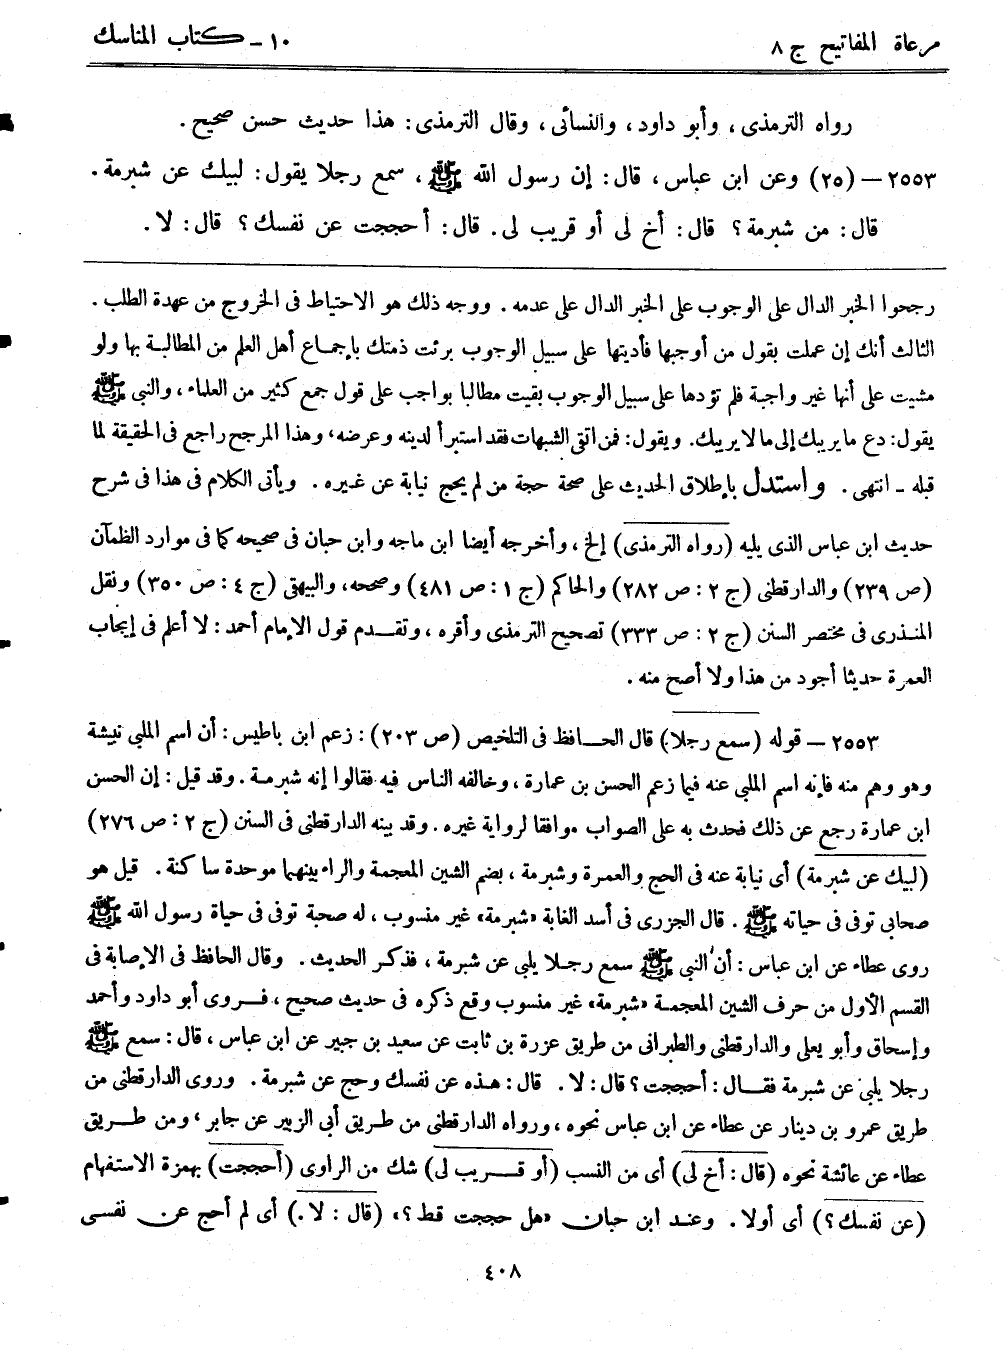 مرعاة المفاتيح ج ٨
١٠ – كتاب المناسك
رواه الترمذى، وأبو داود، والنسائى، وقال الترمذى: هذا حديث حسن صحيح.
٢٥٥٣ – (٢٥) وعن ابن عباس، قال: إن رسول الله ﷺ، سمع رجلا يقول: لبيك عن شبرمة.
قال: من شبرمة؟ قال: أخ لى أو قريب لى. قال: أحججت عن نفسك؟ قال: لا.
رجحوا الخبر الدال على الوجوب على الخبر الدال على عدمه. ووجه ذلك هو الاحتياط فى الخروج من عهدة الطلب.
الثالث أنك إن عملت بقول من أوجبها فأديتها على سبيل الوجوب برئت ذمتك بإجماع أهل العلم من المطالبة بها ولو
مشيت على أنها غير واجبة فلم تؤدها على سبيل الوجوب بقيت مطالبا بواجب على قول جمع كثير من العلماء، والنبى ﷺ
يقول: دع ما يريبك إلى ما لا يريبك. ويقول: فمن اتقى الشبهات فقد استبرأ لدينه وعرضه، وهذا المرجح راجع فى الحقيقة لما
قبله – انتهى. واستدل بإطلاق الحديث على صحة حجة من لم يحج نيابة عن غيره. ويأتى الكلام فى هذا فى شرح
حديث ابن عباس الذى يليه (رواه الترمذى) إلخ، وأخرجه أيضا ابن ماجه وابن حبان فى صحيحه كما فى موارد الظمآن
(ص ٢٣٩) والدارقطنى (ج ٢ : ص ٢٨٢) والحاكم (ج ١ : ص ٤٨١) وصححه، والبيهقى (ج ٤ : ص ٣٥٠) ونقل
المنذرى فى مختصر السنن (ج ٢ : ص ٣٣٣) تصحيح الترمذى وأقره، وتقدم قول الإمام أحمد: لا أعلم فى إيجاب
العمرة حديثا أجود من هذا ولا أصح منه.
٢٥٥٣ – قوله (سمع رجلا) قال الحافظ فى التلخيص (ص ٢٠٣): زعم ابن باطيس: أن اسم الملبى نبيشة
وهو وهم منه فإنه اسم الملبى عنه فيما زعم الحسن بن عمارة، وخالفه الناس فيه فقالوا إنه شبرمة. وقد قيل: إن الحسن
ابن عمارة رجع عن ذلك فحدث به على الصواب موافقا لرواية غيره. وقد بينه الدارقطنى فى السنن (ج ٢ : ص ٢٧٦)
(لبيك عن شبرمة) أى نيابة عنه فى الحج والعمرة وشبرمة، بضم الشين المعجمة والراء بينهما موحدة ساكنة. قيل هو
صحابى توفى فى حياته ﷺ. قال الجزرى فى أسد الغابة «شبرمة» غير منسوب، له صحبة توفى فى حياة رسول الله ﷺ
روى عطاء عن ابن عباس: أن النبى ﷺ سمع رجلا يلبى عن شبرمة، فذكر الحديث. وقال الحافظ فى الإصابة فى
القسم الأول من حرف الشين المعجمة «شبرمة» غير منسوب وقع ذكره فى حديث صحيح، فروى أبو داود وأحمد
وإسحاق وأبو يعلى والدارقطنى والطبرانى من طريق عزرة بن ثابت عن سعيد بن جبير عن ابن عباس، قال: سمع ﷺ
رجلا يلبى عن شبرمة فقال: أحججت؟ قال: لا. قال: هذه عن نفسك وحج عن شبرمة. وروى الدارقطنى من
طريق عمرو بن دينار عن عطاء عن ابن عباس نحوه، ورواه الدارقطنى من طريق أبى الزبير عن جابر، ومن طريق
عطاء عن عائشة نحوه (قال: أخ لى) أى من النسب (أو قريب لى) شك من الراوى (أحججت) بهمزة الاستفهام
(عن نفسك؟) أى أولا. وعند ابن حبان «هل حججت قط؟» (قال: لا.) أى لم أحج عن نفسى
٤٠٨